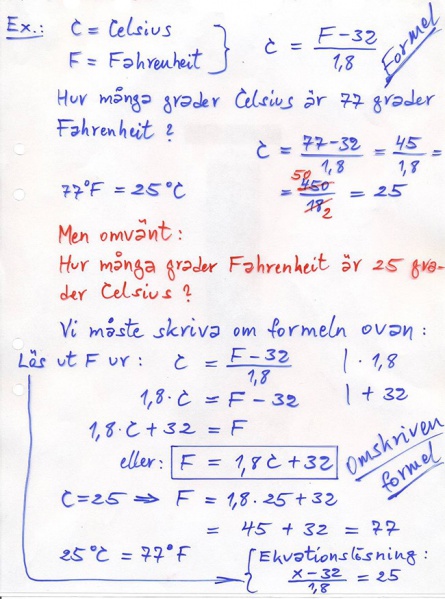 Ex.: C = Celsius
F = Fahrenheit
C = F - 32 / 1,8
Formel
Hur många grader Celsius är 77 grader
Fahrenheit?
C = 77 - 32 / 1,8 = 45 / 1,8 =
77°F = 25°C
= 450 / 18 = 25
50
2
Men omvänt:
Hur många grader Fahrenheit är 25 gra-
der Celsius?
Vi måste skriva om formeln ovan:
Lös ut F ur: C = F - 32 / 1,8 | · 1,8
1,8 · C = F - 32 | + 32
1,8 · C + 32 = F
eller: F = 1,8 C + 32
Omskriven
formel
C = 25 ⇒ F = 1,8 · 25 + 32
= 45 + 32 = 77
25°C = 77°F
Ekvationslösning:
x - 32 / 1,8 = 25